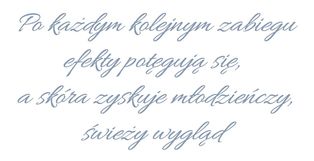 Po każdym kolejnym zabiegu
efekty potęgują się,
a skóra zyskuje młodzieńczy,
świeży wygląd